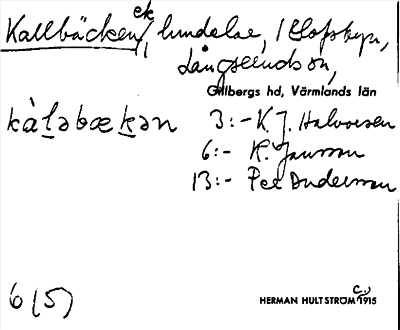 Kallbäcken, ek lundelae, 1 Olofsbyn,
Långseudson,
Gillbergs hd, Värmlands län
kàləbækən 3:- K. J. Halvorsen
6:- K. Jansson
13:- Per Andersson
6 (5)
HERMAN HULTSTRÖM c. 1915